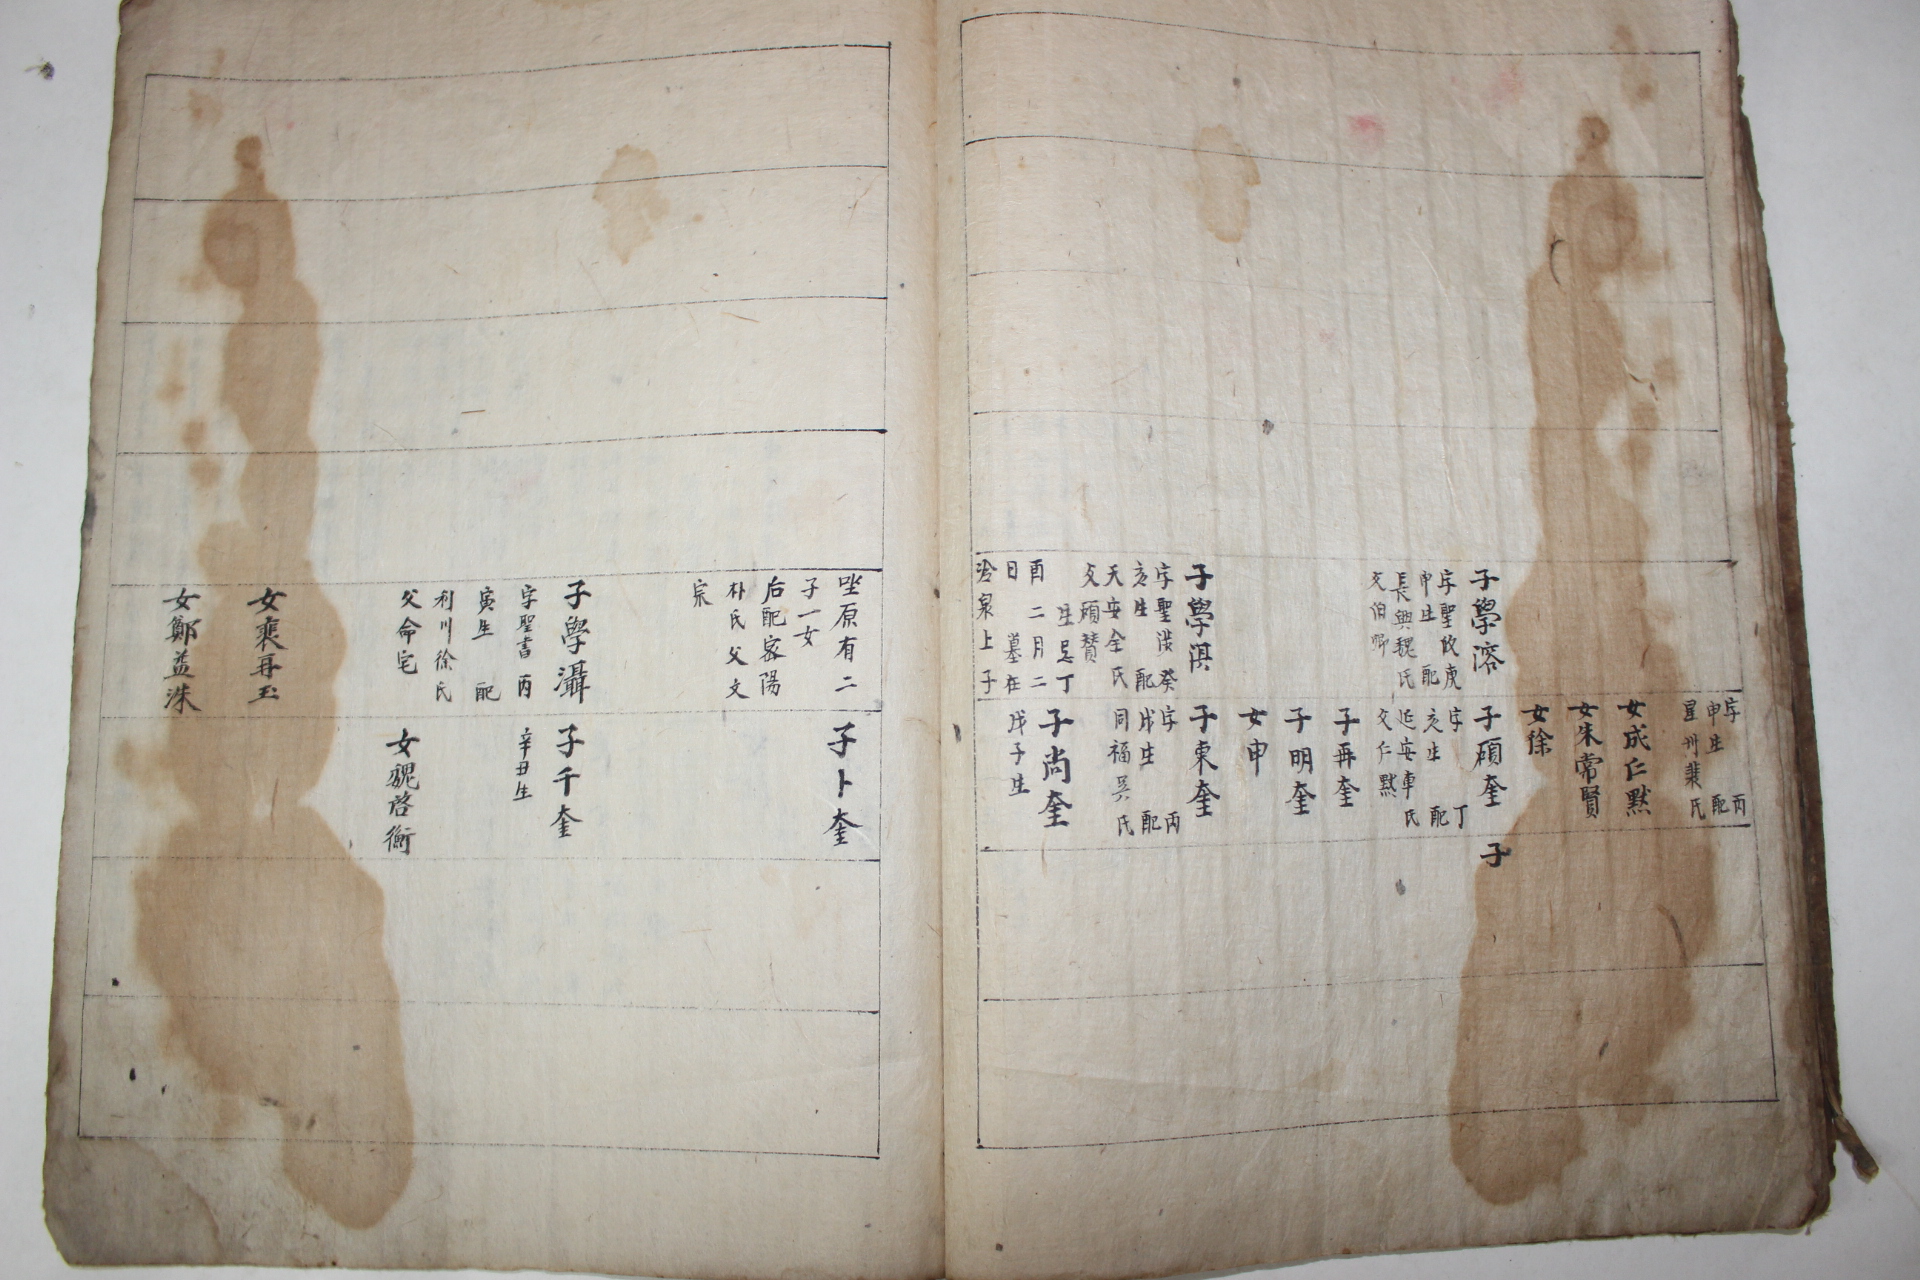 子學溶
字聖攸庚
申生 配
長興魏氏
父伯卿
子學淇
字聖淡癸
亥生 配
天安全氏
父碩贊
生忌丁
酉二月二
日 墓在
冷泉上子
字 丙
申生 配
星州裴氏
女成仁默
女朱常賢
女徐
子碩奎
字 丁
亥生 配
延安車氏
父仁默
子再奎
子明奎
女申
子東奎
字 丙
戌生 配
同福吳氏
子尚奎
戊子生
子
坐原有二
子一女
后配密陽
朴氏父文
宗
子學灄
字聖書丙
寅生 配
利川徐氏
父命宅
女裵再玉
女鄭益洙
子卜奎
子千奎
辛丑生
女魏啓衡